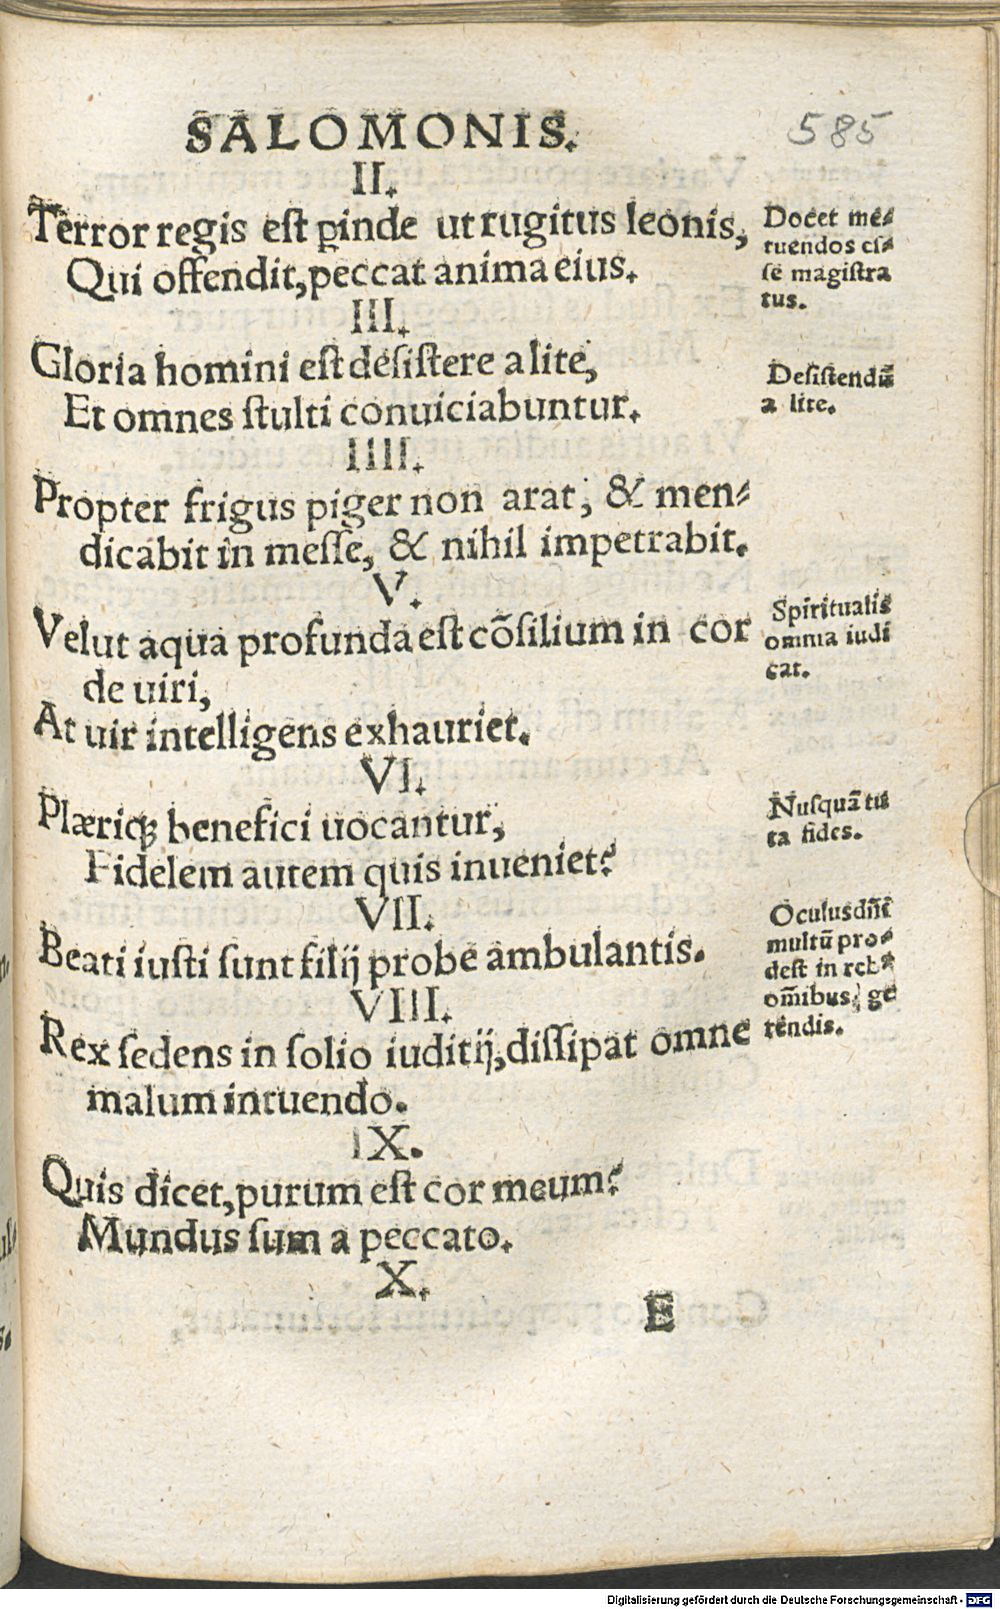 SALOMONIS.
585
II.
Terror regis est ꝑinde ut rugitus leonis,
Qui offendit, peccat anima eius.
Docet me⸗
tuendos es⸗
se magistra
tus.
III.
Gloria homini est desistere a lite,
Et omnes stulti conuiciabuntur.
Desistendū
a lite.
IIII.
Propter frigus piger non arat, & men⸗
dicabit in messe, & nihil impetrabit.
V.
Velut aqua profunda est cõsilium in cor
de uiri,
At uir intelligens exhauriet.
Spiritualis
omnia iudi
cat.
VI.
Plæriqꝫ benefici uocantur,
Fidelem autem quis inueniet?
Nusquā tu
ta fides.
VII.
Beati iusti sunt filij probe ambulantis.
Oculus dñi
multū pro⸗
dest in reb⸗
om̄ibus ge
rendis.
VIII.
Rex sedens in solio iuditij, dissipat omne
malum intuendo.
IX.
Quis dicet, purum est cor meum?
Mundus sum a peccato.
X.
E
Digitalisierung gefördert durch die Deutsche Forschungsgemeinschaft - DFG